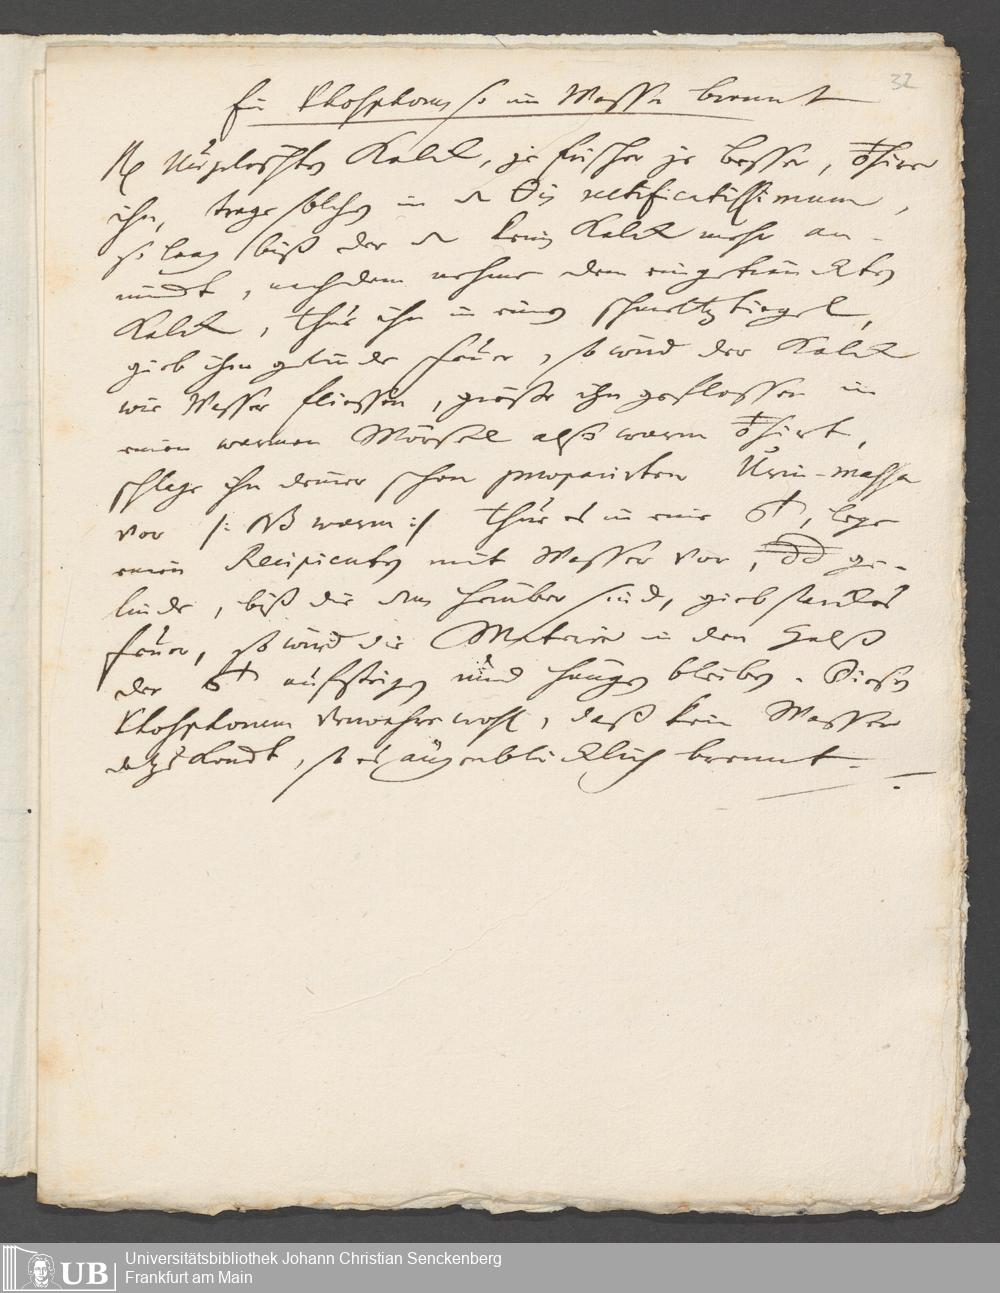 32
Ein Phosphorus so im Wasser brennt
℞ Ungelöschten Kalck, je frischer je besser, 
ihn, trage solchen in rectificatissimum,
so lang biß der kein Kalck mehr an-
nimbt, nachdem nehme den eingetränckten
Kalck, thue ihn in einen schmeltztiegel,
gieb ihm gelinde feuer, so wird der Kalck
wie Wasser fließen, gieße ihn geflossen in
einen warmen Mörsel alß warm
schlage ihn deiner schon praeparirten Urin-massa
vor /: NB warm :/ thue es in eine , lege
einen Recipienten mit Wasser vor, ge-
linde, biß die herüber sind, gieb starckes
feuer, so wird die Materie in den Halß
der aufsteigen und hangen bleiben. Diesen
Phosphorum verwahre wohl, daß kein Wasser
dazu kombt, so es augenblicklich brennt.
UB
Universitätsbibliothek Johann Christian Senckenberg
Frankfurt am Main